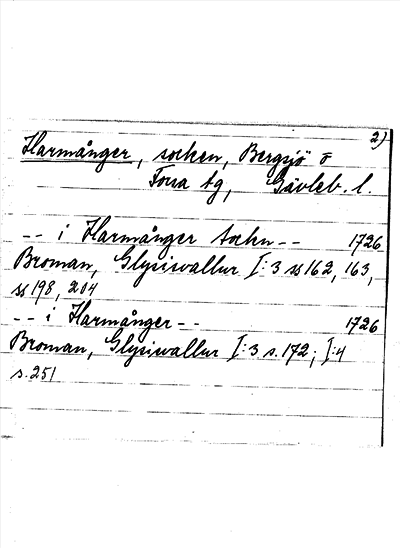 2)
Harmånger, socken, Bergsjö o
Forsa tg, Gävleb. l.
-- i Harmånger Sockn -- 1726
Broman, Glysisvallur I:3 ss 162, 163,
ss 198, 204
-- i Harmånger -- 1726
Broman, Glysisvallur I:3 s. 172; I:4
s. 251